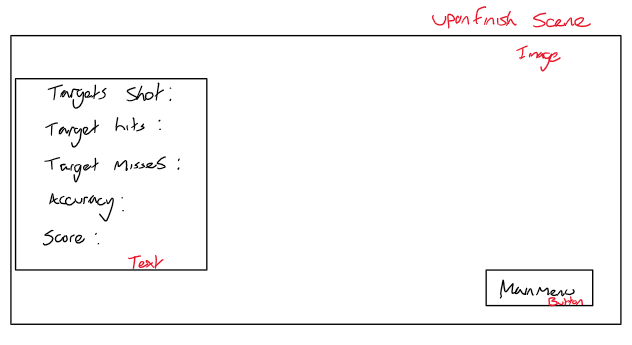 Upon finish Scene
Image
Targets Shot :
Target hits :
Target Misses :
Accuracy :
Score :
Text
Main Menu
Button